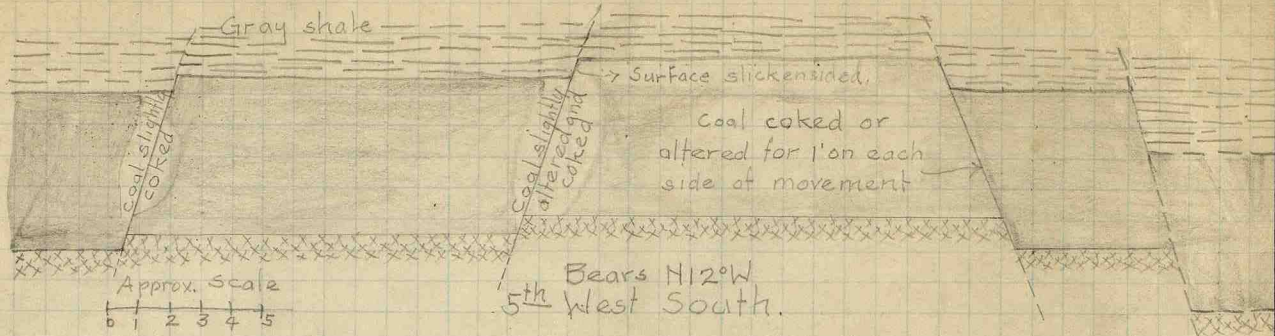 Gray shale
Surface slickensided.
Coal slightly
coked
Coal slightly
altered and
coked
Coal coked or
altered for 1' on each
side of movement
Approx. Scale
0 1 2 3 4 5
Bears N12°W
5th West South.